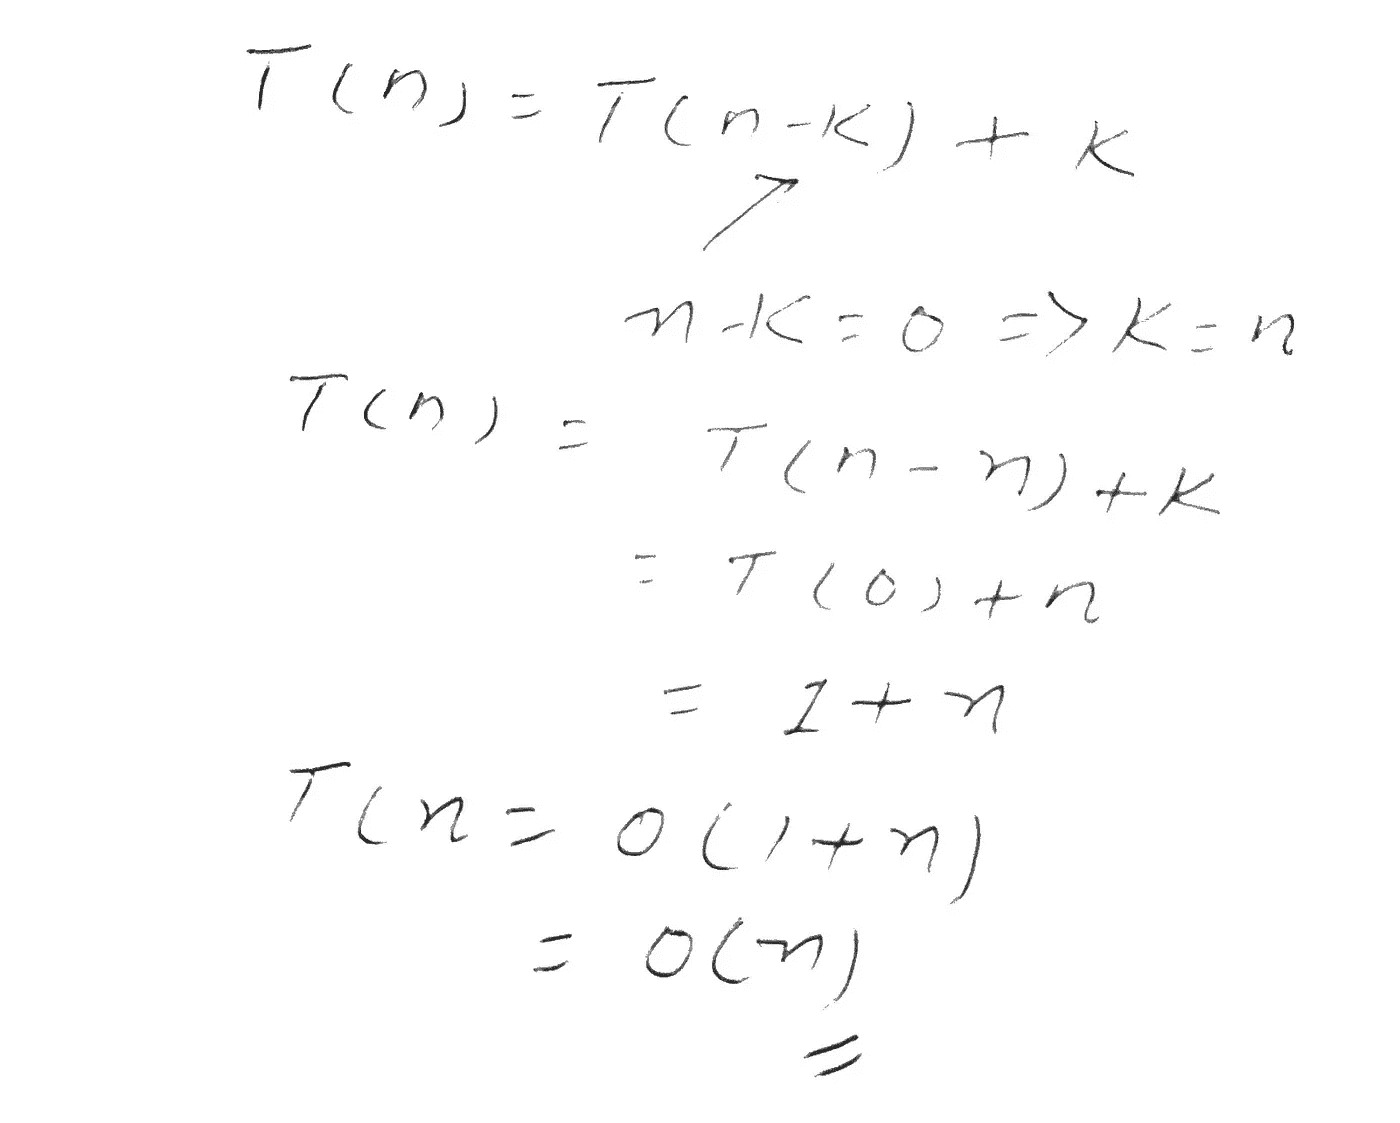 T(n) = T(n-K) + K
n-K=0 => K=n
T(n) = T(n-n)+K
= T(0)+n
= 1+n
T(n = O(1+n)
= O(n)
=